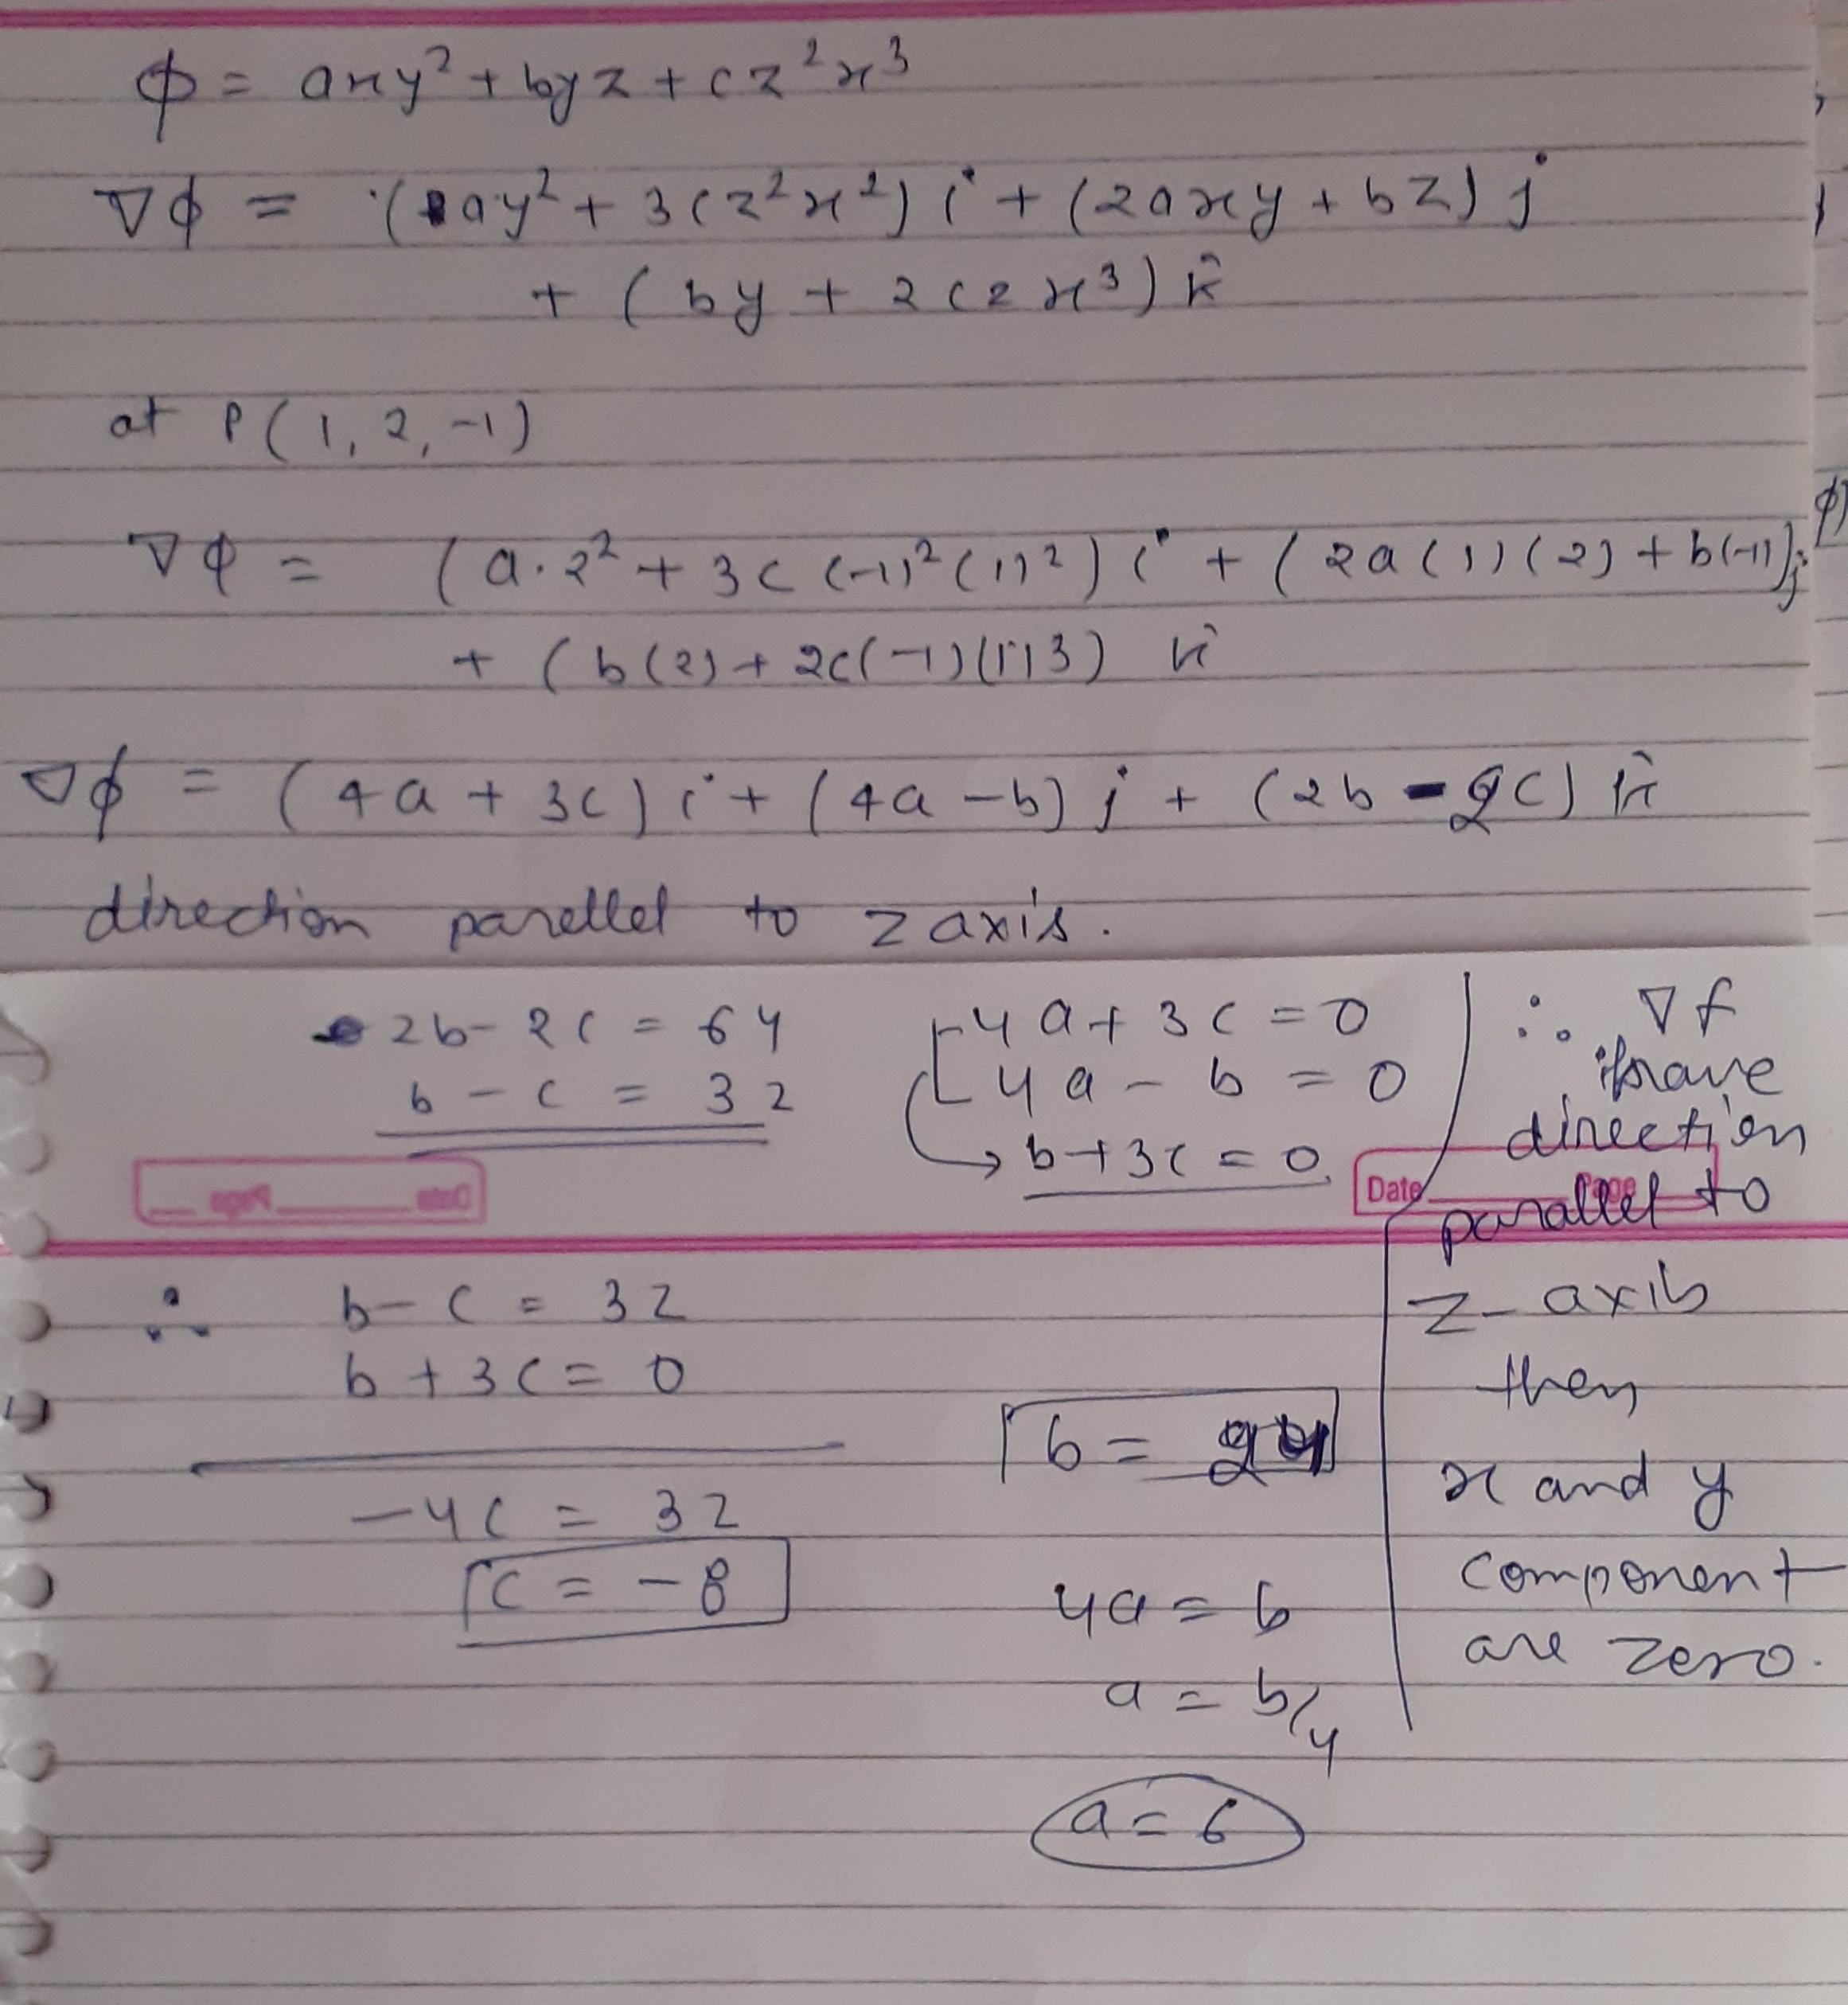 ϕ = axy² + byz + cz²x³
∇ϕ = (ay² + 3cz²x²) i + (2axy + bz) j
+ (by + 2czx³) k̂
at P(1, 2, -1)
∇ϕ = (a·2² + 3c(-1)²(1)²) i + (2a(1)(2) + b(-1)) j
+ (b(2) + 2c(-1)(1)3) k̂
∇ϕ = (4a + 3c) i + (4a - b) j + (2b - 2c) k̂
direction parellel to z axis.
2b - 2c = 64
b - c = 32
4a + 3c = 0
4a - b = 0
→ b + 3c = 0
∴ ∇f
have
direction
parallel to
z-axis
then
x and y
component
are zero.
Date Page
∴ b - c = 32
b + 3c = 0
-4c = 32
c = -8
b = 24
4a = b
a = b/4
a = 6